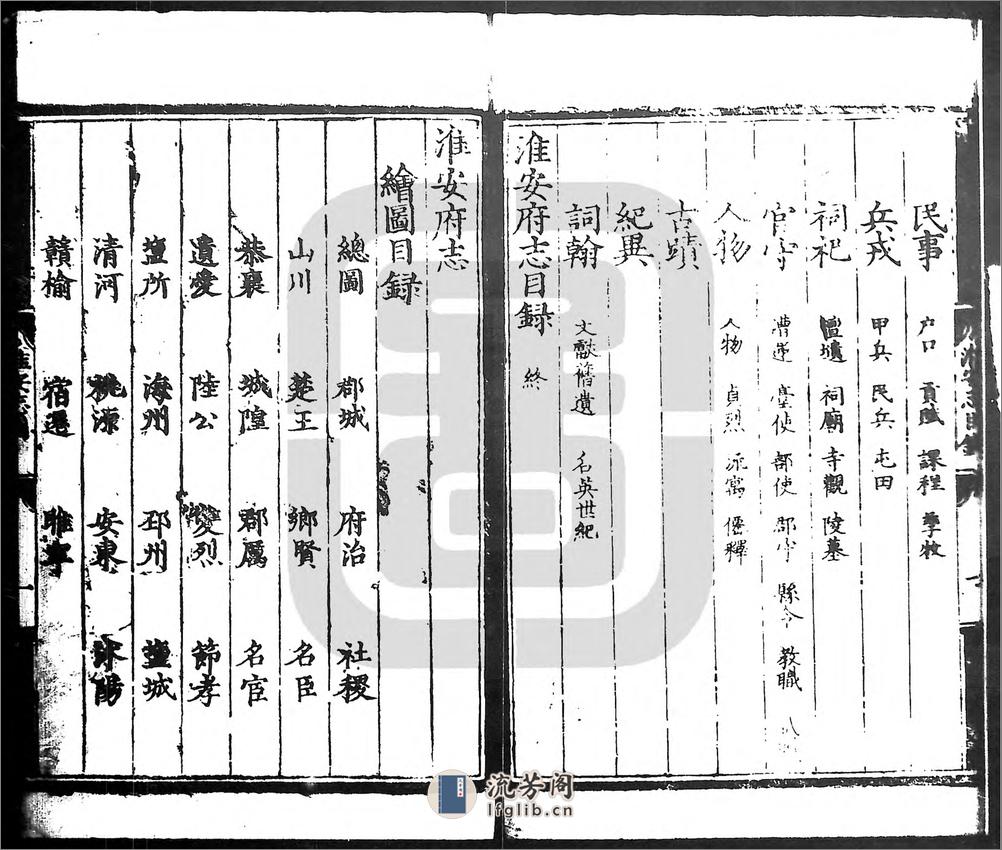 民事 户口 貢賦 課程 孳牧
兵戎 甲兵 民兵 屯田
祠祀 壇壝 祠廟 寺觀 陵墓
官守 漕運 臺使 部使 郡守 縣令 教職
人物 人物 貞烈 流寓 僊釋
古蹟
紀異
詞翰 文獻 遺 名英世紀
淮安府志目録 終
淮安府志
繪圖目録
總圖 郡城 府治 社稷
山川 楚王 鄉賢 名臣
恭襄 城隍 郡厲 名宦
遺愛 陸公 烈 節孝
鹽所 海州 邳州 鹽城
清河 桃源 安東 沭陽
贛榆 宿遷 睢寧
流芳阁
lfglib.cn